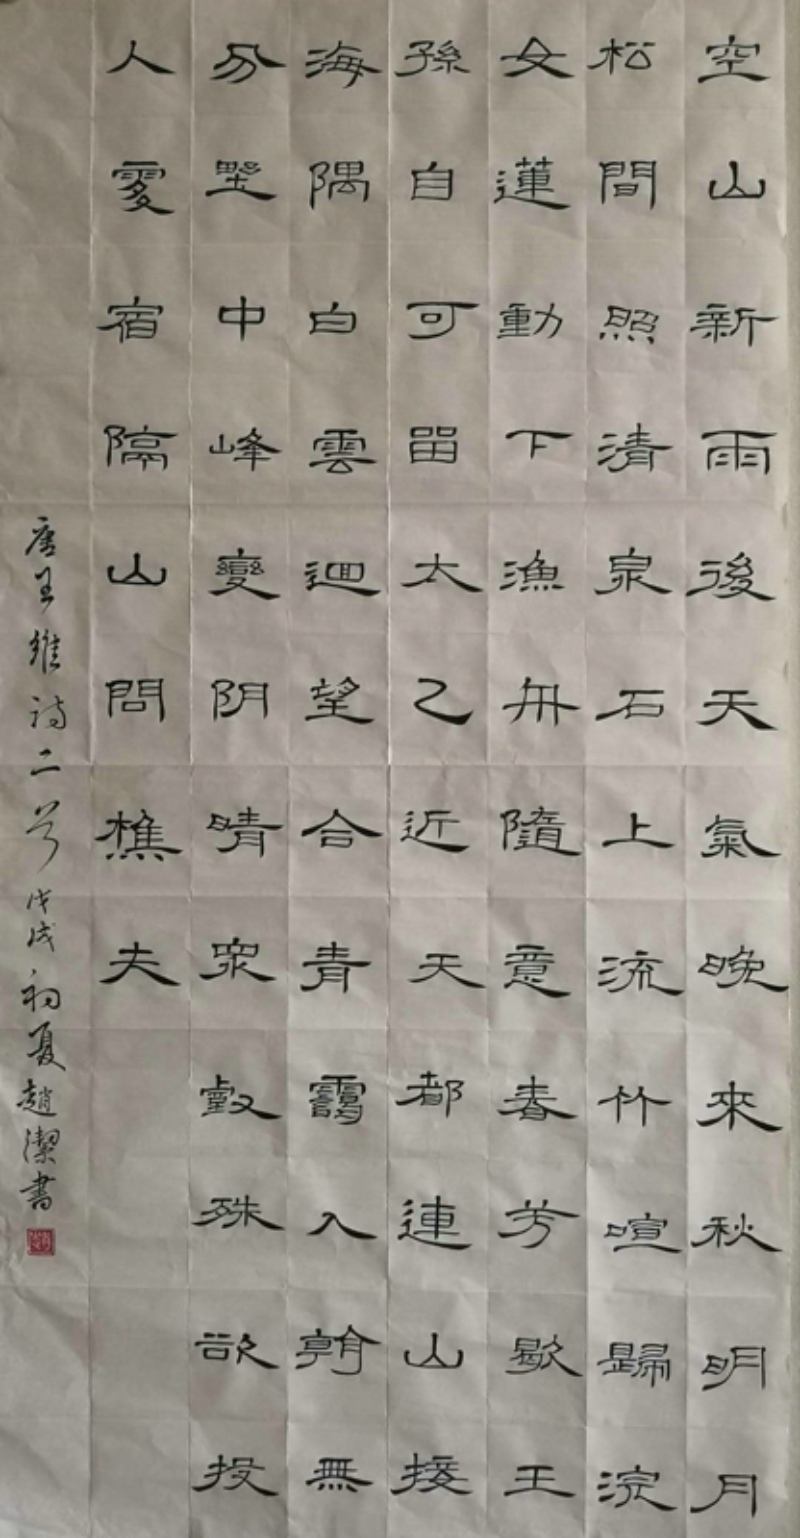 空山新雨後天氣晚來秋明月
松間照清泉石上流竹喧歸浣
女蓮動下漁舟隨意春芳歇王
孫自可留太乙近天都連山接
海隅白雲迴望合青靄入看無
分野中峰變阴晴眾壑殊欲投
人處宿隔山問樵夫
唐王維诗二首戊戌初夏趙潔書